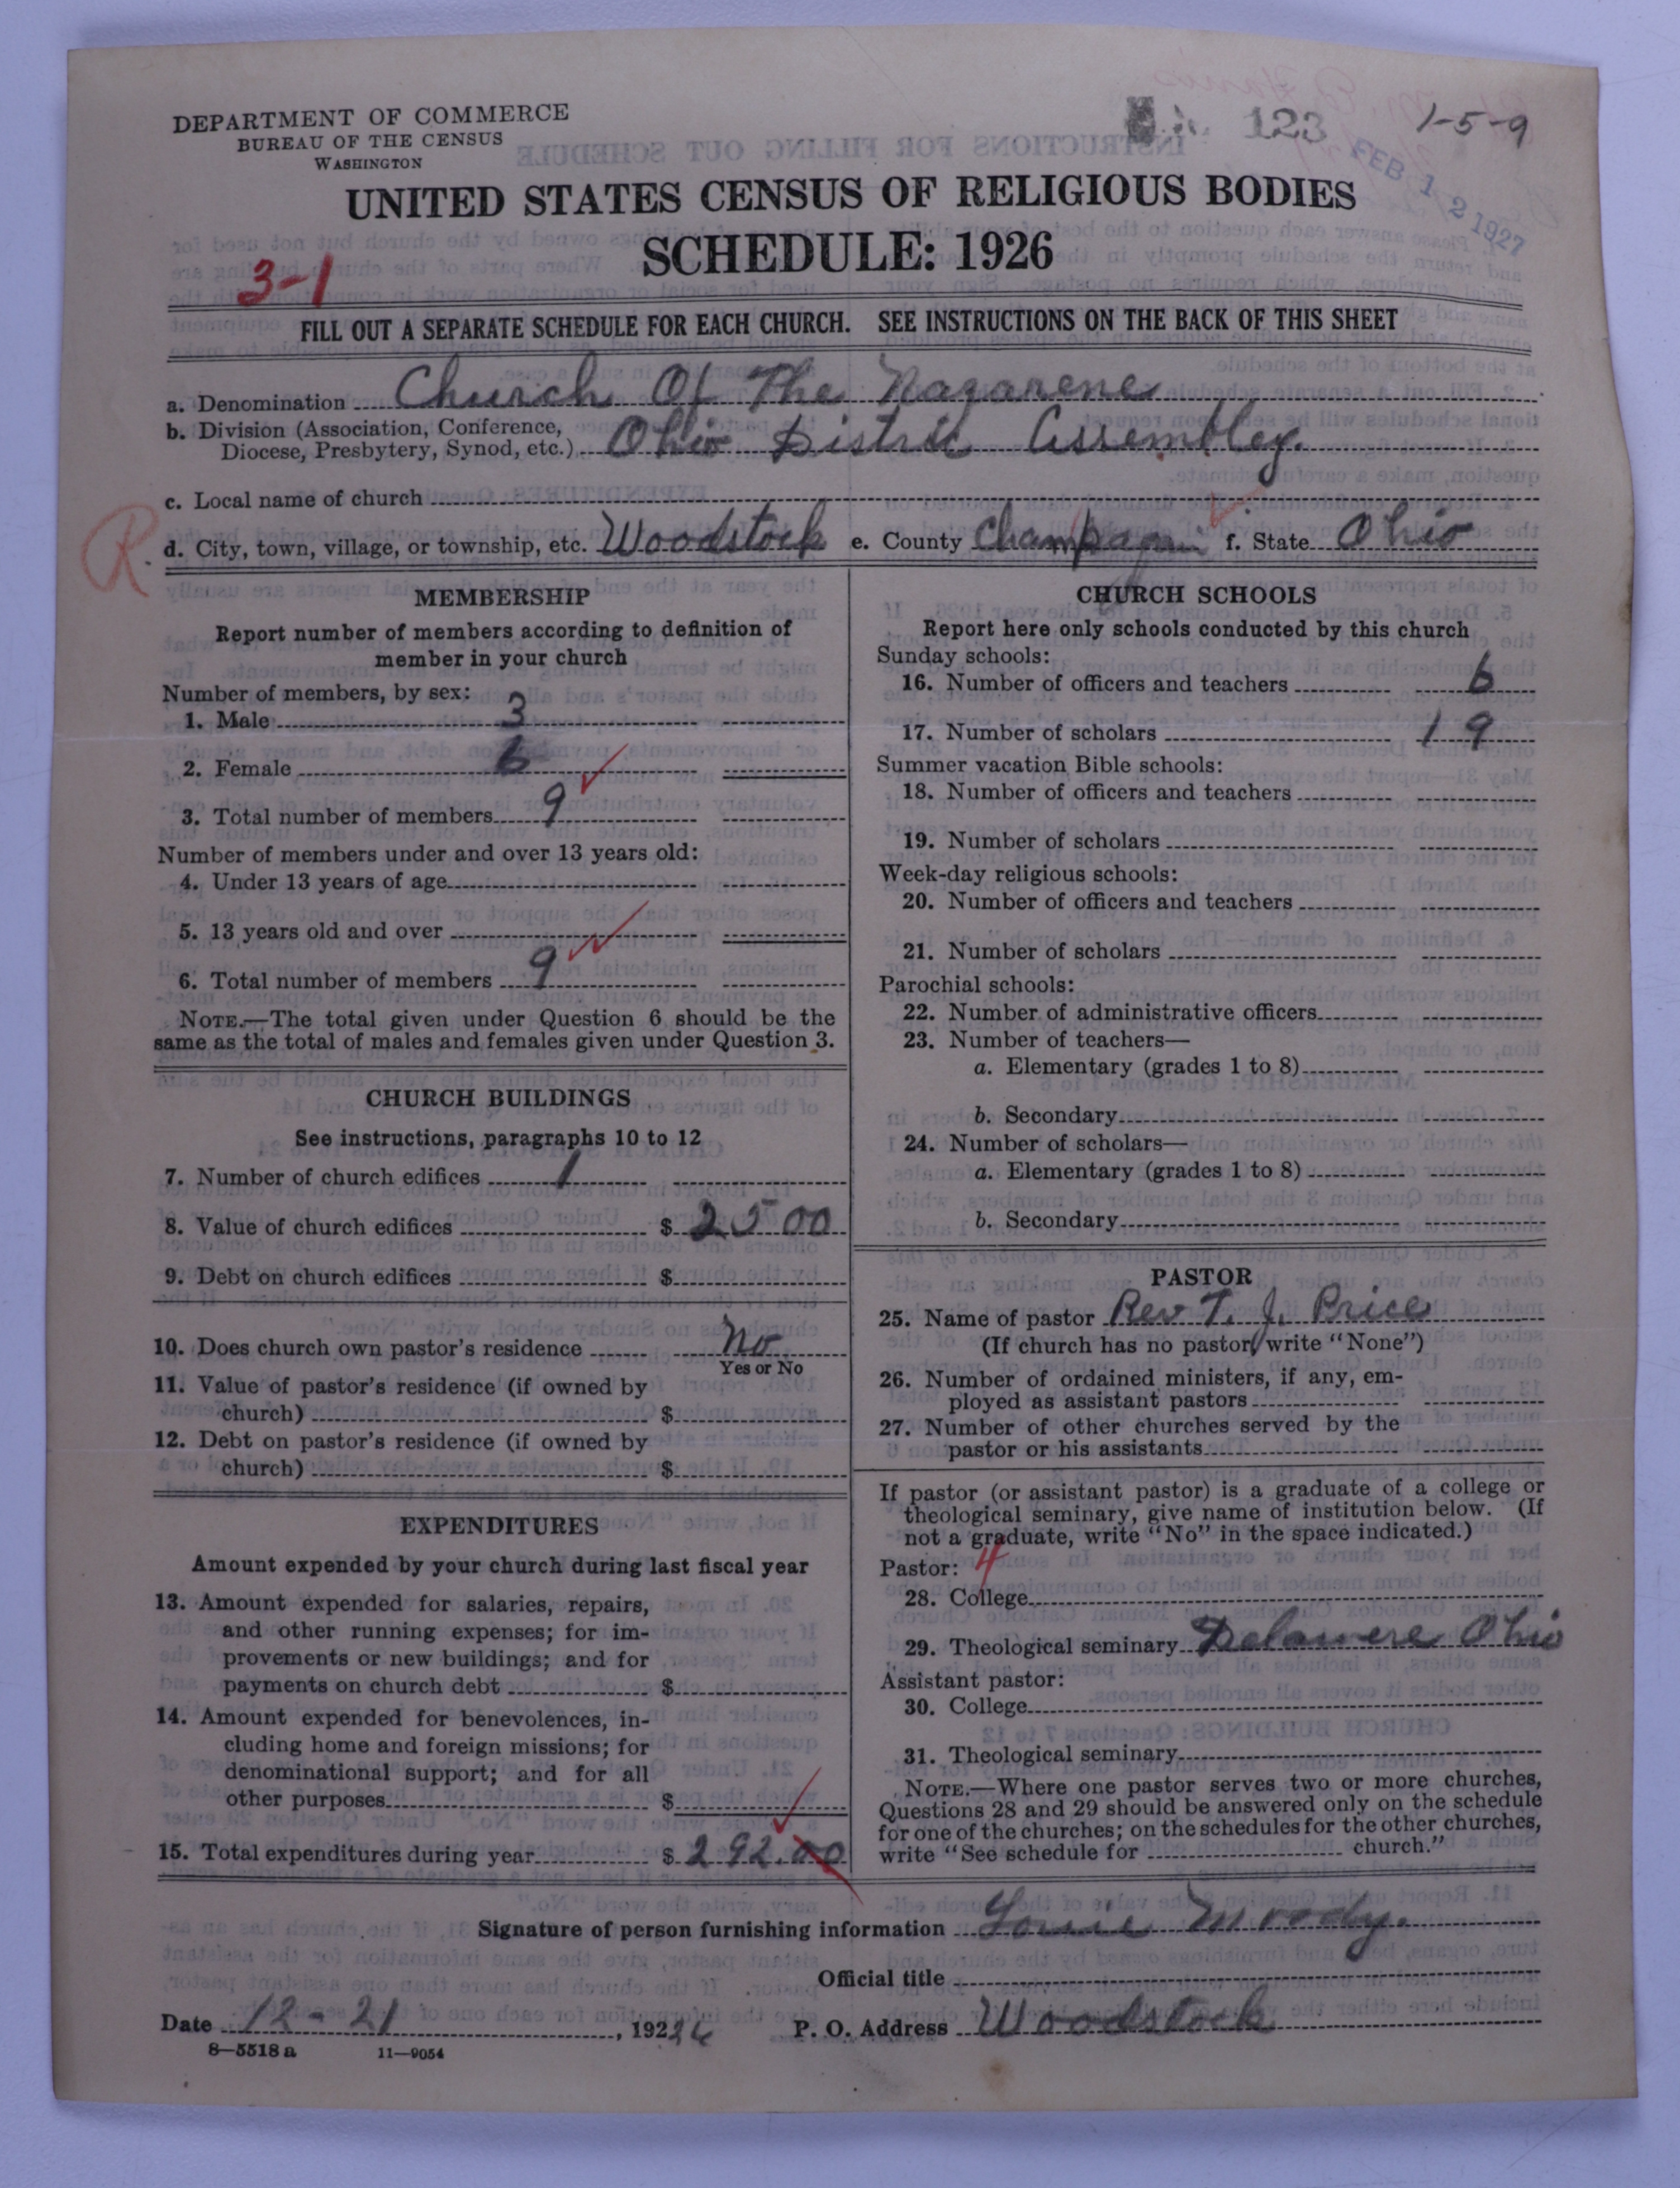 DEPARTMENT OF COMMERCE
BUREAU OF THE CENSUS
WASHINGTON
123
1-5-9
FEB 12 1927
UNITED STATES CENSUS OF RELIGIOUS BODIES
SCHEDULE: 1926
3-1
FILL OUT A SEPARATE SCHEDULE FOR EACH CHURCH. SEE INSTRUCTIONS ON THE BACK OF THIS SHEET
a. Denomination Church Of The Nazarene
b. Division (Association, Conference,
Diocese, Presbytery, Synod, etc.) Ohio District Assembley.
c. Local name of church
R.
d. City, town, village, or township, etc. Woodstock e. County f. State Ohio
MEMBERSHIP
Report number of members according to definition of
member in your church
Number of members, by sex:
1. Male 3
2. Female 6
3. Total number of members 9
Number of members under and over 13 years old:
4. Under 13 years of age
5. 13 years old and over
6. Total number of members 9
NOTE.—The total given under Question 6 should be the
same as the total of males and females given under Question 3.
CHURCH BUILDINGS
See instructions, paragraphs 10 to 12
7. Number of church edifices 1
8. Value of church edifices $ 2500
9. Debt on church edifices $
10. Does church own pastor's residence No
Yes or No
11. Value of pastor's residence (if owned by
church) $
12. Debt on pastor's residence (if owned by
church) $
EXPENDITURES
Amount expended by your church during last fiscal year
13. Amount expended for salaries, repairs,
and other running expenses; for im-
provements or new buildings; and for
payments on church debt $
14. Amount expended for benevolences, in-
cluding home and foreign missions; for
denominational support; and for all
other purposes $
15. Total expenditures during year $ 292.00
CHURCH SCHOOLS
Report here only schools conducted by this church
Sunday schools:
16. Number of officers and teachers 6
17. Number of scholars 19
Summer vacation Bible schools:
18. Number of officers and teachers
19. Number of scholars
Week-day religious schools:
20. Number of officers and teachers
21. Number of scholars
Parochial schools:
22. Number of administrative officers
23. Number of teachers—
a. Elementary (grades 1 to 8)
b. Secondary
24. Number of scholars—
a. Elementary (grades 1 to 8)
b. Secondary
PASTOR
25. Name of pastor Rev T. J. Price
(If church has no pastor, write "None")
26. Number of ordained ministers, if any, em-
ployed as assistant pastors
27. Number of other churches served by the
pastor or his assistants
If pastor (or assistant pastor) is a graduate of a college or
theological seminary, give name of institution below. (If
not a graduate, write "No" in the space indicated.)
Pastor: 4
28. College
29. Theological seminary Delawere Ohio
Assistant pastor:
30. College
31. Theological seminary
NOTE.—Where one pastor serves two or more churches,
Questions 28 and 29 should be answered only on the schedule
for one of the churches; on the schedules for the other churches,
write "See schedule for church."
Signature of person furnishing information Moody.
Official title
Date 12-21, 192
P. O. Address Woodstock
8—5518 a 11—9054